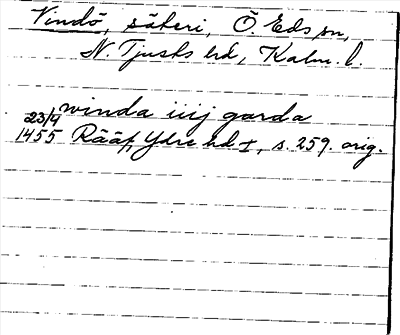 Vindö, säteri, Ö. Eds sn,
N. Tjusts hd, Kalm. l.
winda iiij garda
23/9
1455 Rääf, Ydre hd I, s. 259. orig.